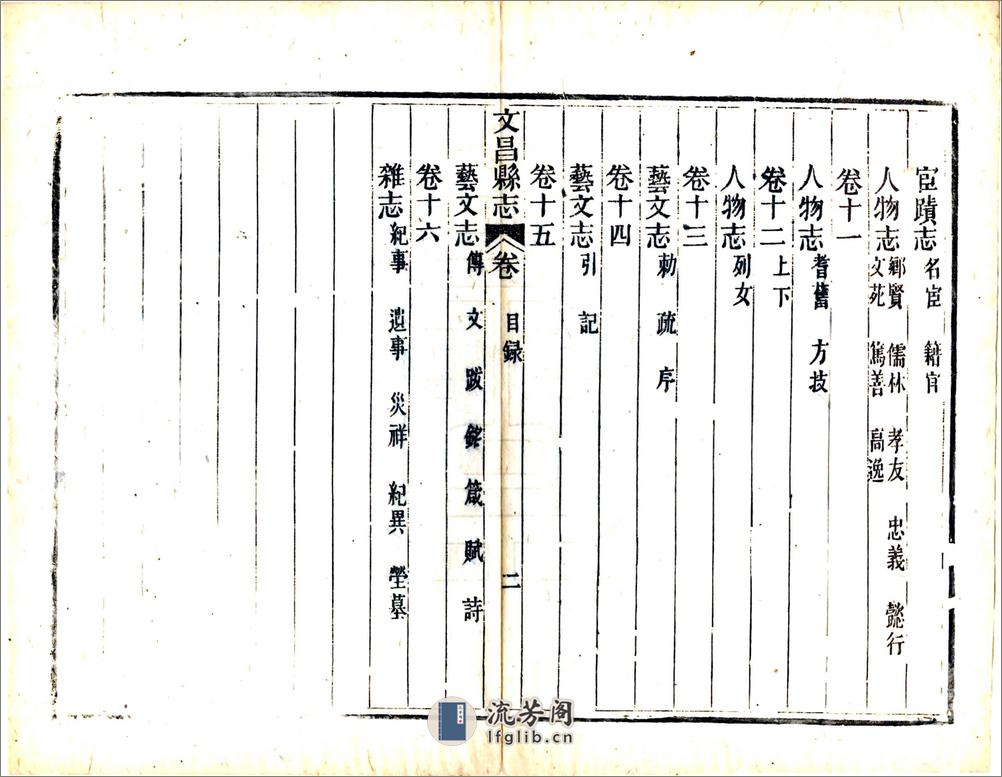 宦蹟志 名宦 籍官
人物志 鄉賢 儒林 孝友 忠義 懿行
文苑 篤善 高逸
卷十一
人物志 耆舊 方技
卷十二 上下
人物志 列女
卷十三
藝文志 勅 疏 序
卷十四
藝文志 引 記
卷十五
文昌縣志 卷 目録 二
藝文志 傳 文 跋 銘 箴 賦 詩
卷十六
雜志 紀事 遺事 災祥 紀異 塋墓
流芳阁
lfglib.cn